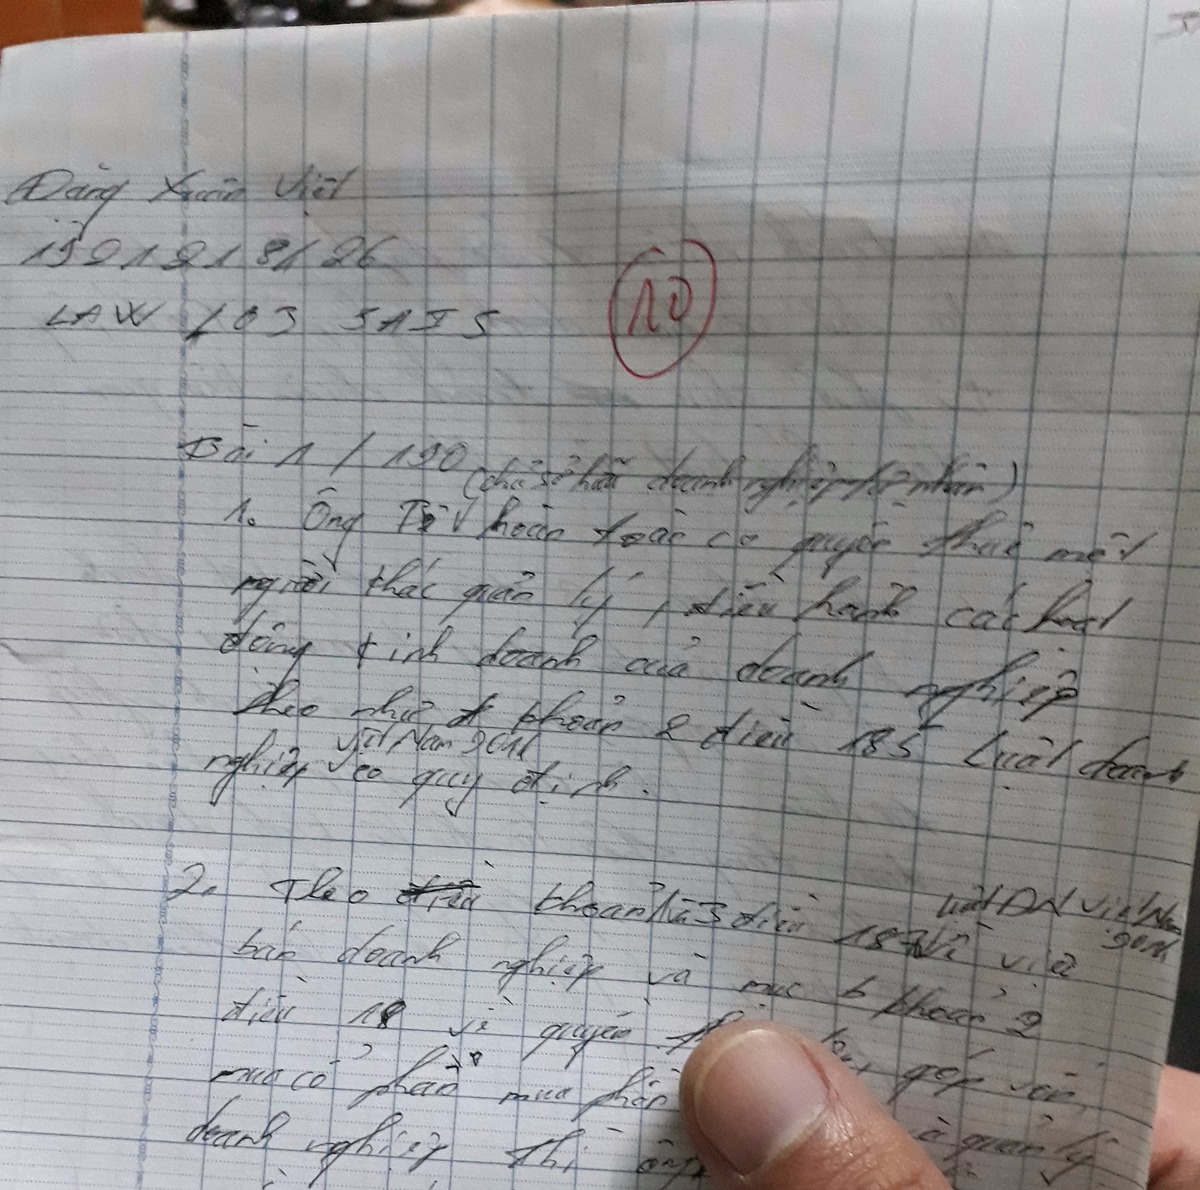 Đặng Xuân Việt
1921218126
LAW 403 SAIS
10
Bài 1 / 190
(chủ sở hữu doanh nghiệp tư nhân)
1. Ông hoàn toàn có quyền thuê một
người khác quản lý, điều hành các hoạt
động kinh doanh của doanh nghiệp
theo như khoản 2 điều 185 Luật doanh
Việt Nam 2014
nghiệp có quy định.
2. Theo khoản 3 điều 187 Luật DN Việt Nam
2014
về việc
bán doanh nghiệp và mục b khoản 2
điều 18 về quyền góp vốn,
mua cổ phần mua phần quản lý
doanh nghiệp thì